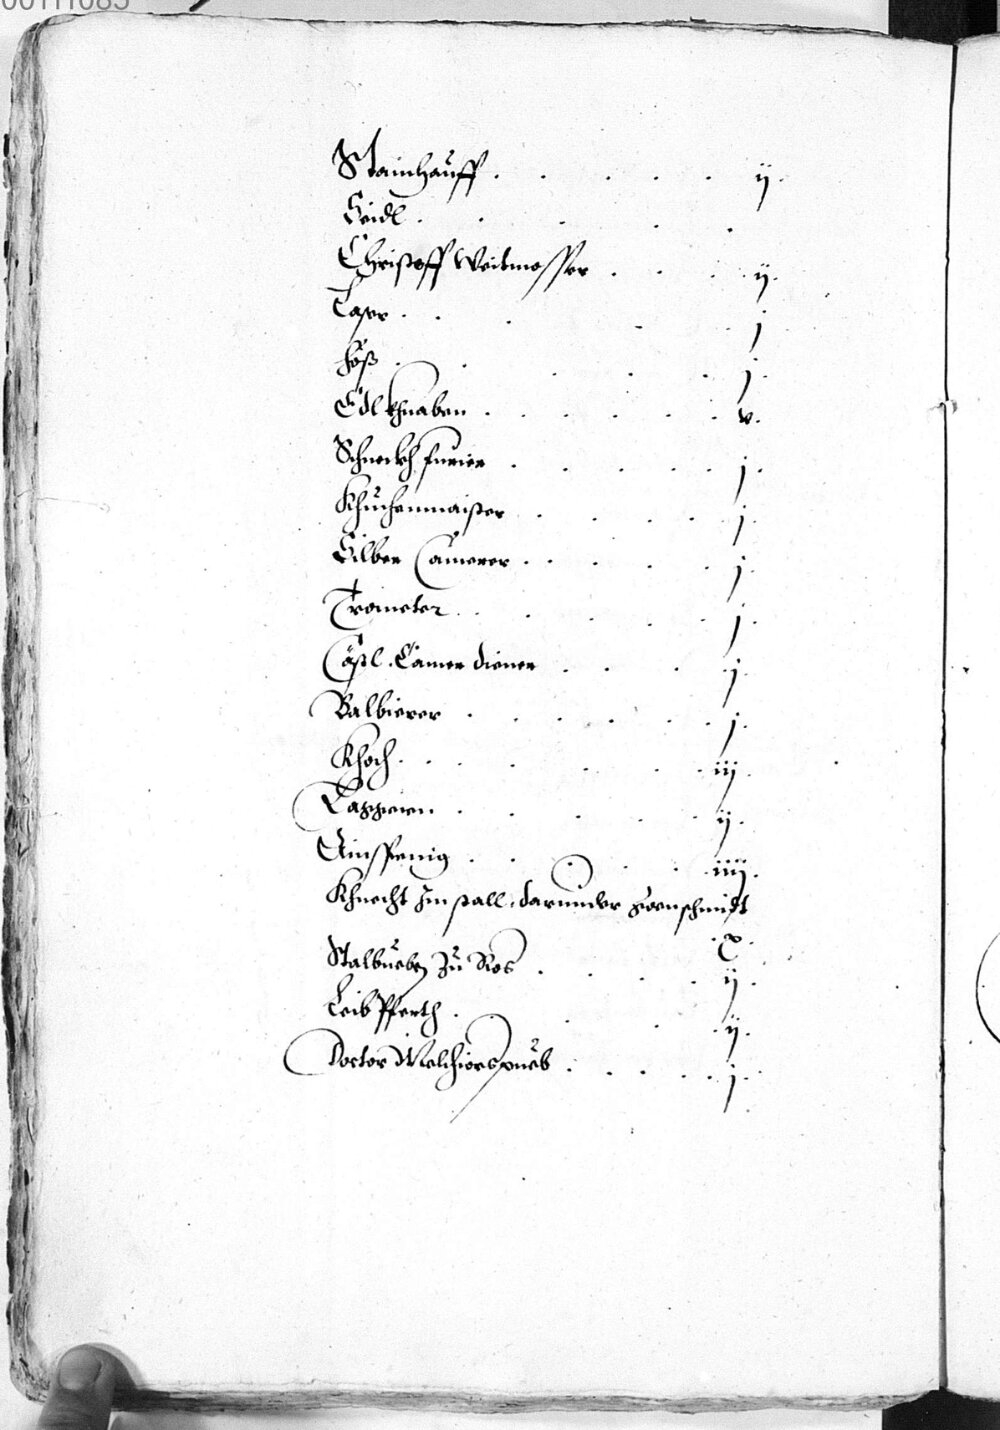 00111085
Stainhauff . . . . . ij.
Seidl . . . . .
Christoff Weitmosser . . . ij.
Caspr . . . . . j
Föß . . . . . j.
Edlkhnaben . . . . . . v.
Schneckh furier . . . . . j.
Khuchenmaister . . . . j.
Silber Camerer . . . . . j.
Trometer . . . . . . j.
Cässl . Camer diener . . . . j.
Balbierer . . . . . . j.
Khoch . . . . . . iij.
Laggeien . . . . . ij.
Ainspenig . . . . . iiij.
Khnecht Im stall, darunder huefschmidt
. x .
Stalbueben Zu Ros . . . . ij.
Leib Pferth . . . . ij.
Doctor Melchiors pueb . . . . . j.